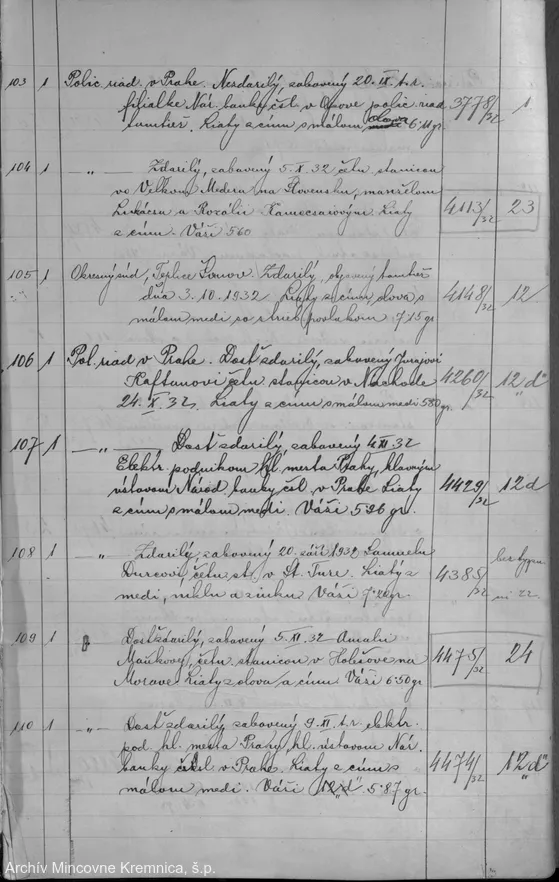 103 1 Polic. riad. v Prahe. Nezdarilý, zabavený 20.IX t.r.
filialke Nár. banky čsl v Opave polic. riad
tamtiež. Liaty z cínu s málom olova 6·11 gr. 3778/32 1
104 1 —„— Zdarilý, zabavený 5.X.32 četn. stanicou
vo Velkom Mederu na Slovensku, manželom
Lukácsa a Rozálii Kamocsaiovým. Liaty
z cínu. Váži 5·60 4113/32 23
105 1 Okresný súd, Teplice Šanov. Zdarilý, tamtiež
dňa 3.10.1932 Liaty z cínu, olova s
málom medi so strieb. povlakom 7·15 gr 4148/32 12
106 1 Pol. riad v Prahe. Dosť zdarilý, zabavený Jurajovi
Kaftanovi četn. stanicou v Nachode
24.X.32. Liaty z cínu s málom medi 5·80 gr. 4260/32 12 „d“
107 1 —„— Dosť zdarilý, zabavený 4.XI.32
Elektr. podnikom hl. mesta Prahy, hlavným
ústavom Národ. banky čsl. v Prahe Liaty
z cínu s málom medi. Váži 5·96 gr. 4429/32 12 d
108 1 „ Zdarilý, zabavený 20. září 1932 Samuelu
Durcovi, četn. st. v St. Ture. Liatý z
medi, niklu a zinku Váži gr. 4385/32 bez typu
109 1 Dosť zdarilý, zabavený 5.XI.32 Amalii
Maňkovej, četn. stanicou v Holešove na
Morave Liaty z olova a cínu Váži 6·50 gr 4475/32 24
110 1 —„— Dosť zdarilý zabavený 9.XI.t.r. elektr.
pod. hl. mesta Prahy, hl. ústavom Nár.
banky čsl v Prahe. Liaty z cínu s
málom medi. Váži 12 „d“ 5·87 gr. 4474/32 12 „d“
Archív Mincovne Kremnica, š.p.